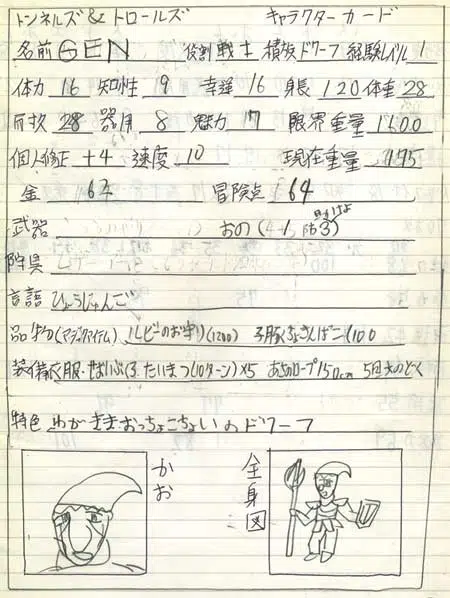 トンネルズ&トロールズ キャラクターカード
名前 GEN 役割 戦士 種族 ドワーフ 経験レベル 1
体力 16 知性 9 幸運 16 身長 120 体重 28
耐久 28 器用 8 魅力 17 限界重量 1600
個人修正 +4 速度 10 現在重量 775
金 64 冒険点 64
武器 おの(4+1,
防具
言語 ひょうじゅんご
品物(マジックアイテム) ルビーのお守り(1200) (100
装備 衣服・せおいぶくろ たいまつ(10ターン)×5 あさのロープ 5回
特色 わかき おっちょこちょいのドワーフ
かお
全身図